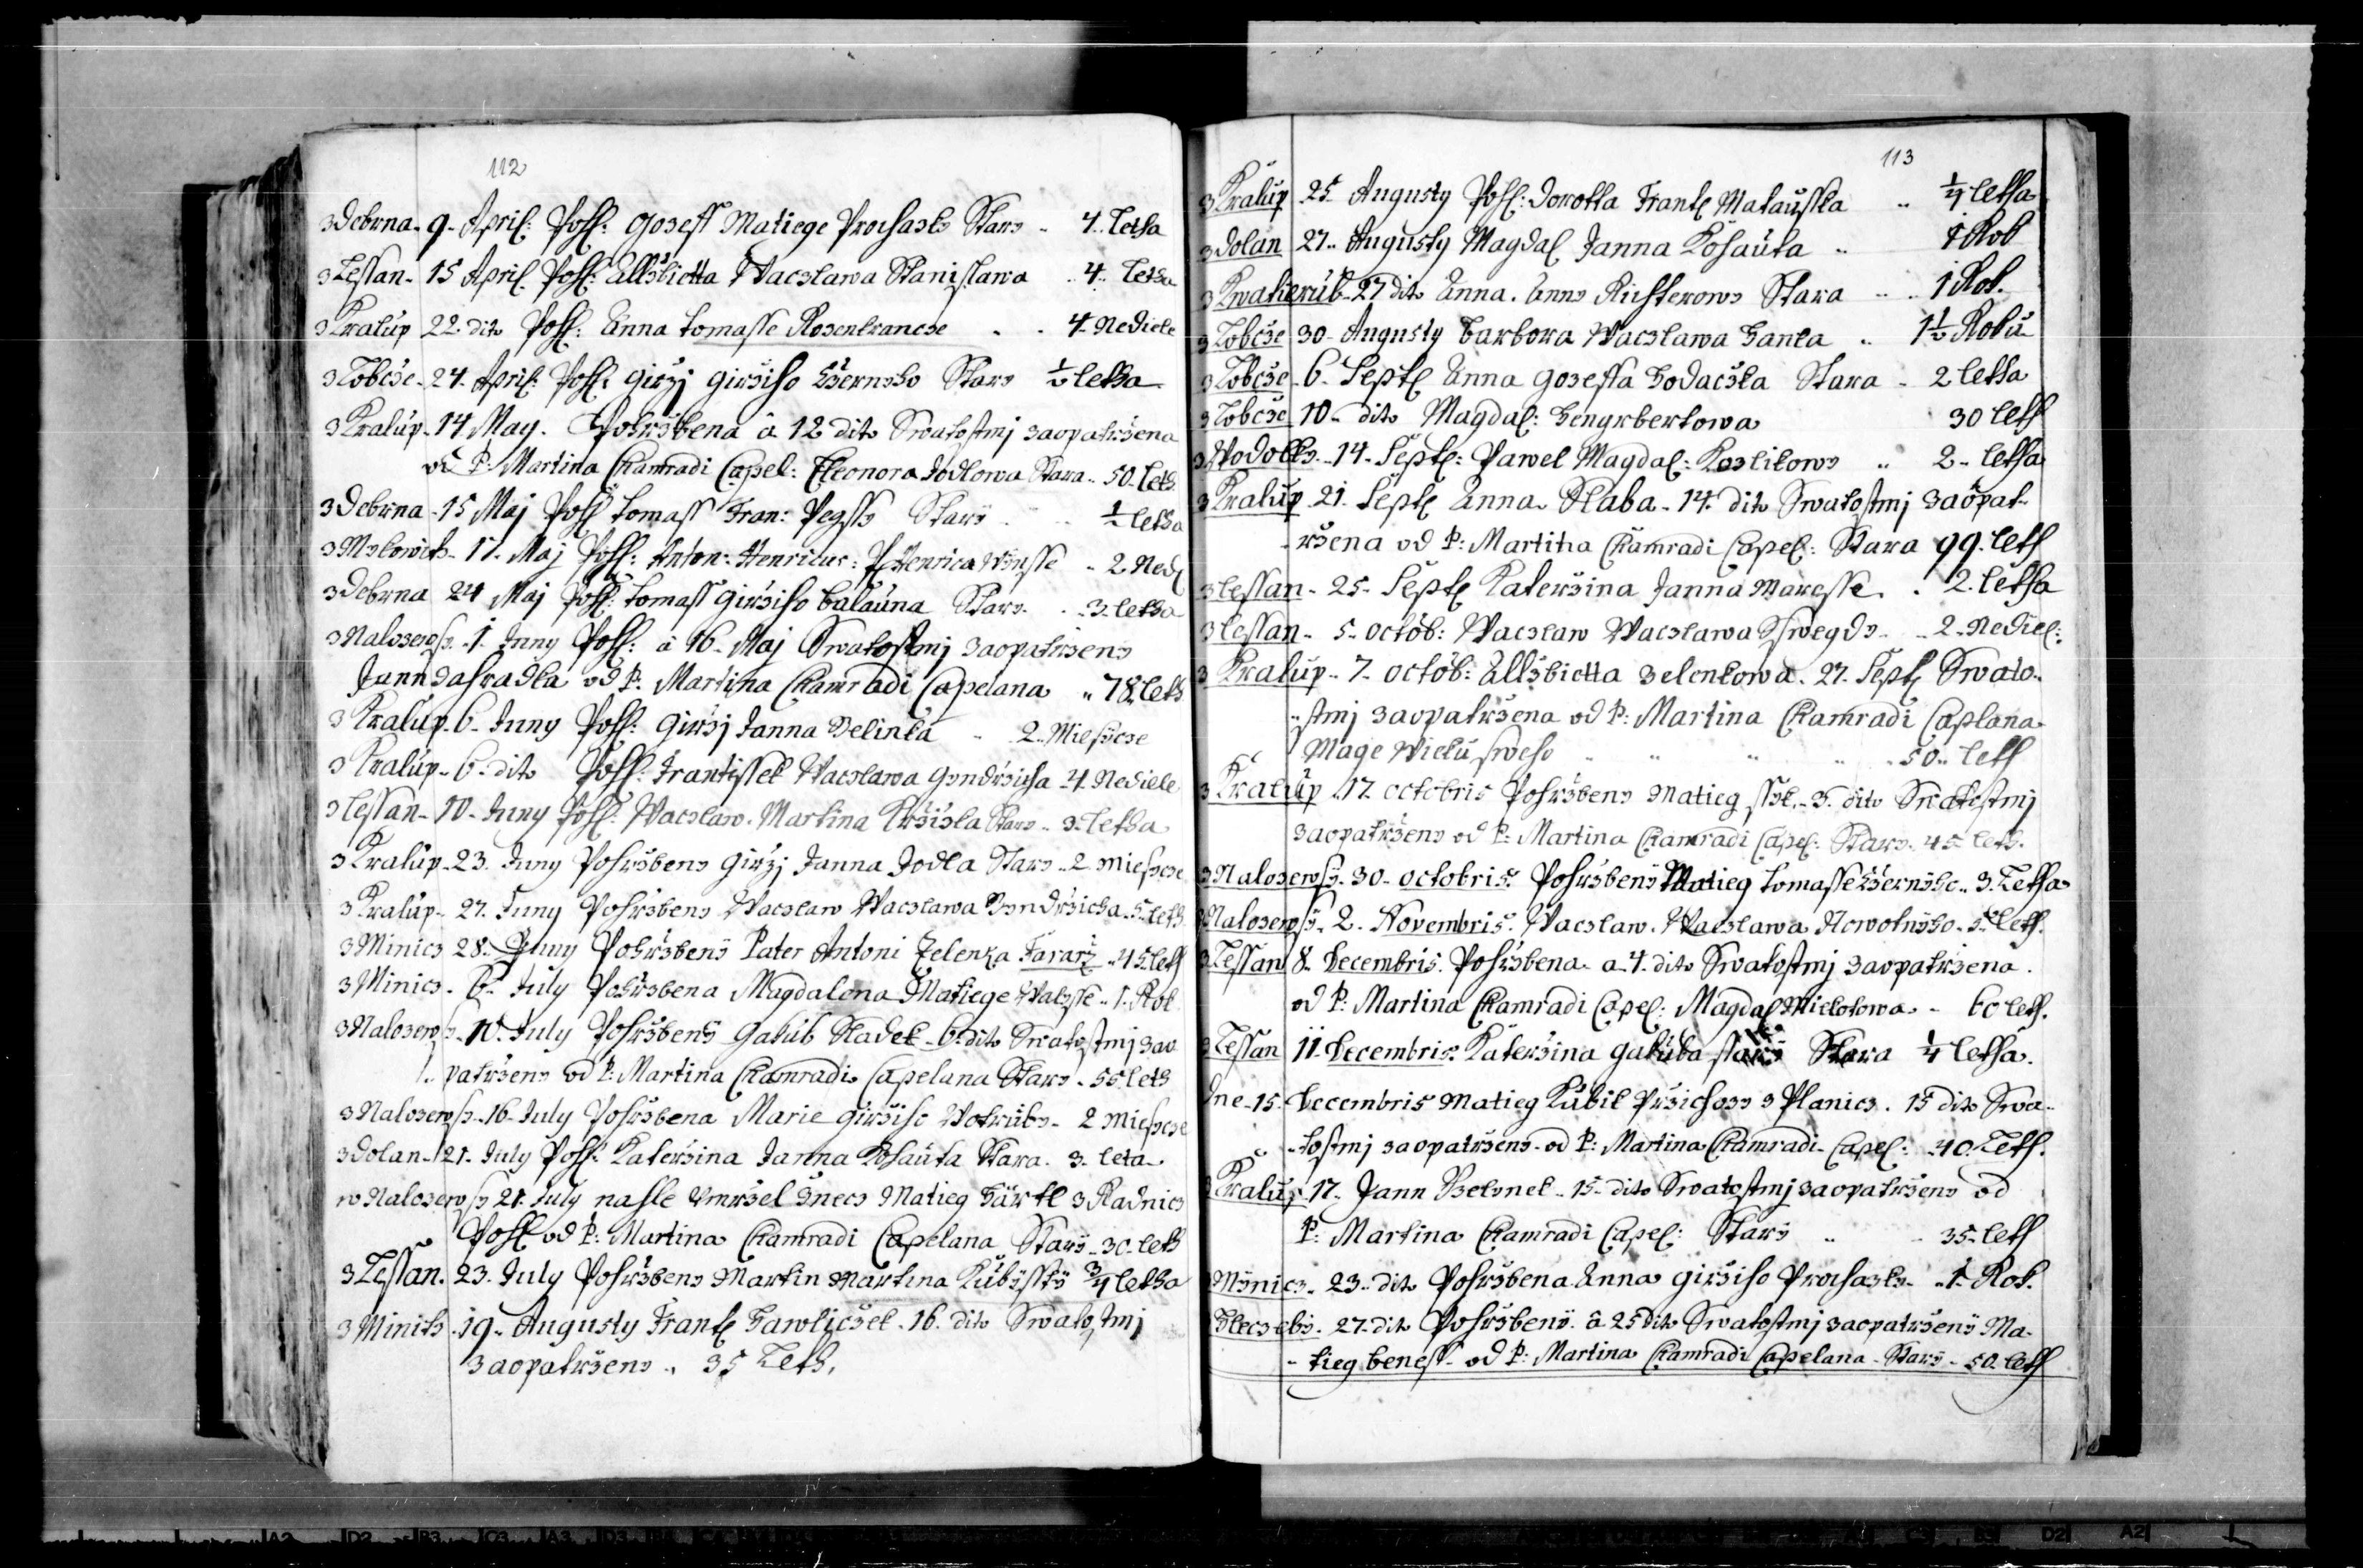 112
z Debrna - 9. April: Pohž: Jozeff Matiege Prochazky Stary .. 4. Letha
z Lessan - 15 April. Pohž: Ellžbietta Waczlawa Stanislawa .. 4. Letha
z Kralup 22. dito Pohž: Anna Tomasse Rosenkrancze .. 4. Nediele
z Lobcže - 24. April: Pohž: Giržj Giržiho Czerneho Stary ½ Letha
z Kralup - 14 May. Pohržbena a 12 dito Swatostmj zaopatržena
od P: Martina Chamradi Capel: Eleonora Jodlowa Stara .. 50. Leth
z Debrna - 15 Maj Pohž Tomass Fran: Pegssy Stary .. ½ Letha
z Mikowicz - 17. Maj Pohž: Anton: Henricus: P Henrica Winsse .. 2 Ned:
z Debrna 24 Maj Pohž: Tomass Giržiho Balauna Stary .. 3. Letha
z Nalozews: - 1. Juny Pohž: a 16. Maj Swatostmj zaopatrženy
Jann Zahradka od P: Martina Chamradi Capelana .. 78. Leth
z Kralup - 6. Juny Pohž: Giržj Janna Belinka .. 2. Miesycze
z Kralup - 6. dito Pohž: Frantissek Waczlawa Gyndržicha - 4. Nediele
z Lessan - 10. Juny Pohž: Waczlaw. Martina Kržižka Stary .. 3. Letha
z Kralup - 23. Juny Pohržbeny Giržj Janna Jodla Stary .. 2 miesycze
z Kralup - 27. Juny Pohržbeny Waczlaw Waczlawa Gyndržicha .. 5. Leth
z Minicz 28. Juny Pohržbeny Pater Antoni Zelenka Fararž .. 45. Leth
z Minicz - 6. July Pohržbena Magdalena Matiege Walesse .. 1. Rok
z Nalozews. - 10. July Pohržbeny Gakub Sladek - 6. dito Swatostmj zao
patrženy od P: Martina Chamradi Capelana Stary - 55 Leth
z Nalozews. - 16. July Pohržbena Marie Giržiho Wotruby - 2 Miesycze
z Dolan - 21. July Pohž: Kateržina Janna Kohauta Stara. 3. Leta
w Nalozews 21. July nahle Vmržel Žnecz Matieg Hartl z Radnicz
Pohž od P: Martina Chamradi Capelana Stary - 30. Leth
z Lessan. 23. July Pohržbeny Martin Martina Kubyssty ¾ Letha
z Minicz - 19. Augusty Frant: Hawliczek - 16. dito Swatostmj
zaopatrženy .. 35 Leth.
113
z Kralup 25 Augusty Pohž: Dorotta Frant: Matausska .. ¼ Letha
z Dolan 27. Augusty Magdal: Janna Kohauta .. 1 Rok
z Kwatierub - 27 dito Anna. Anny Richterowy Stara .. 1 Rok.
z Lobcže 30. Augusty Barbora Waczlawa Hanka .. 1½ Roku
z Lobcže - 6. Sept: Anna Gozeffa Hodaczka Stara - 2 Letha
z Lobcže 10. dito Magdal: Hengrbertowa 30 Leth
z Wodolky - 14. Sept: Pawel Magdal: Kozlikowy .. 2. Letha
z Kralup 21. Sept: Anna Slaba - 14. dito Swatostmj zaopat-
ržena od P: Martina Chamradi Capel: Stara 99. Leth
z Lessan - 25. Sept: Kateržina Janna Maresse .. 2. Letha
z Lessan - 5. Octob: Waczlaw Waczlawa Sswegdy .. 2. Nediel:
z Kralup .. 7. Octob: Ellžbietta Zelenkowa. 27. Sept: Swato-
stmj zaopatržena od P: Martina Chamradi Caplana
Mage Wieku sweho .. 50. Leth
z Kralup .. 17. Octobris Pohržbeny Matieg - 3. dito Swatostmj
zaopatrženy od P: Martina Chamradi Capel: Stary. 45 Leth.
z Nalozews. 30. Octobris. Pohržbeny Matieg Tomasse Czerneho .. 3. Letha
z Nalozews. 2. Novembris. Waczlaw. Waczlawa Nowotneho - 5. Leth.
z Lessan 8. Decembris. Pohržbena a 4. dito Swatostmj zaopatržena.
od P: Martina Chamradi Capel: Magdal Mickotowa - 60 Leth.
z Lessan 11. Decembris. Kateržina Gakuba Stara ¼ Letha.
Dne - 15. Decembris Matieg Kubik Pržichozy z Planicz. 15 dito Swa-
tostmj zaopatrženy - od P: Martina Chamradi Capel: 40. Leth.
z Kralup - 17. Jann - 15. dito Swatostmj zaopatrženy od
P: Martina Chamradi Capel: Stary .. 35. Leth
z Mynicz - 23. dito Pohržbena Anna Giržiho Prochazky - 1. Rok.
27. dito Pohržbeny. a 25 dito Swatostmj zaopatrženy Ma-
tieg Beness - od P: Martina Chamradi Capelana - Stary - 50. Leth